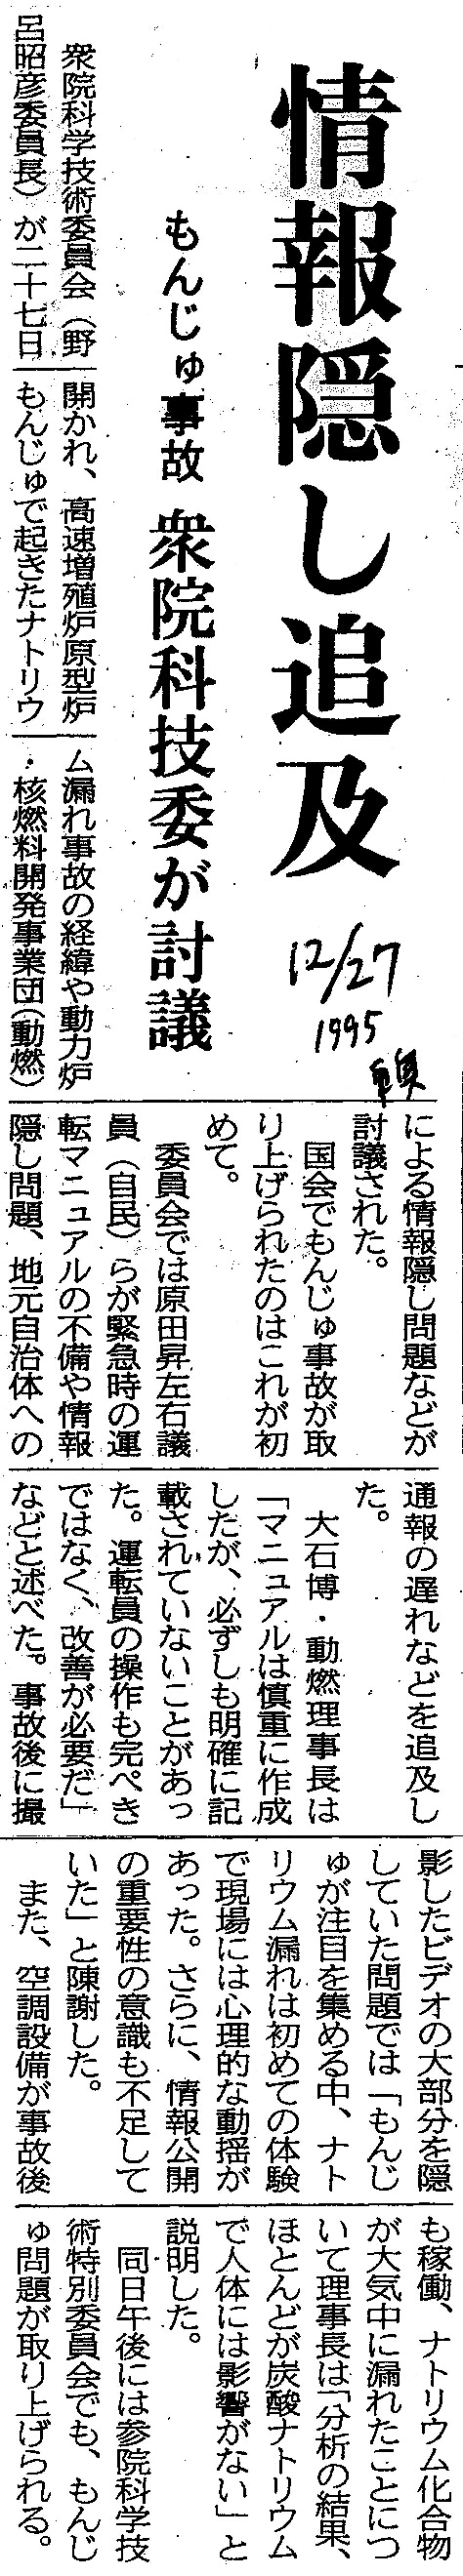 情報隠し追及
もんじゅ事故 衆院科技委が討議
12/27
1995
衆院科学技術委員会（野
呂昭彦委員長）が二十七日
開かれ、高速増殖炉原型炉
もんじゅで起きたナトリウ
ム漏れ事故の経緯や動力炉
・核燃料開発事業団（動燃）
による情報隠し問題などが
討議された。
国会でもんじゅ事故が取
り上げられたのはこれが初
めて。
委員会では原田昇左右議
員（自民）らが緊急時の運
転マニュアルの不備や情報
隠し問題、地元自治体への
通報の遅れなどを追及し
た。
大石博・動燃理事長は
「マニュアルは慎重に作成
したが、必ずしも明確に記
載されていないことがあっ
た。運転員の操作も完ぺき
ではなく、改善が必要だ」
などと述べた。事故後に撮
影したビデオの大部分を隠
していた問題では「もんじ
ゅが注目を集める中、ナト
リウム漏れは初めての体験
で現場には心理的な動揺が
あった。さらに、情報公開
の重要性の意識も不足して
いた」と陳謝した。
また、空調設備が事故後
も稼働、ナトリウム化合物
が大気中に漏れたことにつ
いて理事長は「分析の結果、
ほとんどが炭酸ナトリウム
で人体には影響がない」と
説明した。
同日午後には参院科学技
術特別委員会でも、もんじ
ゅ問題が取り上げられる。